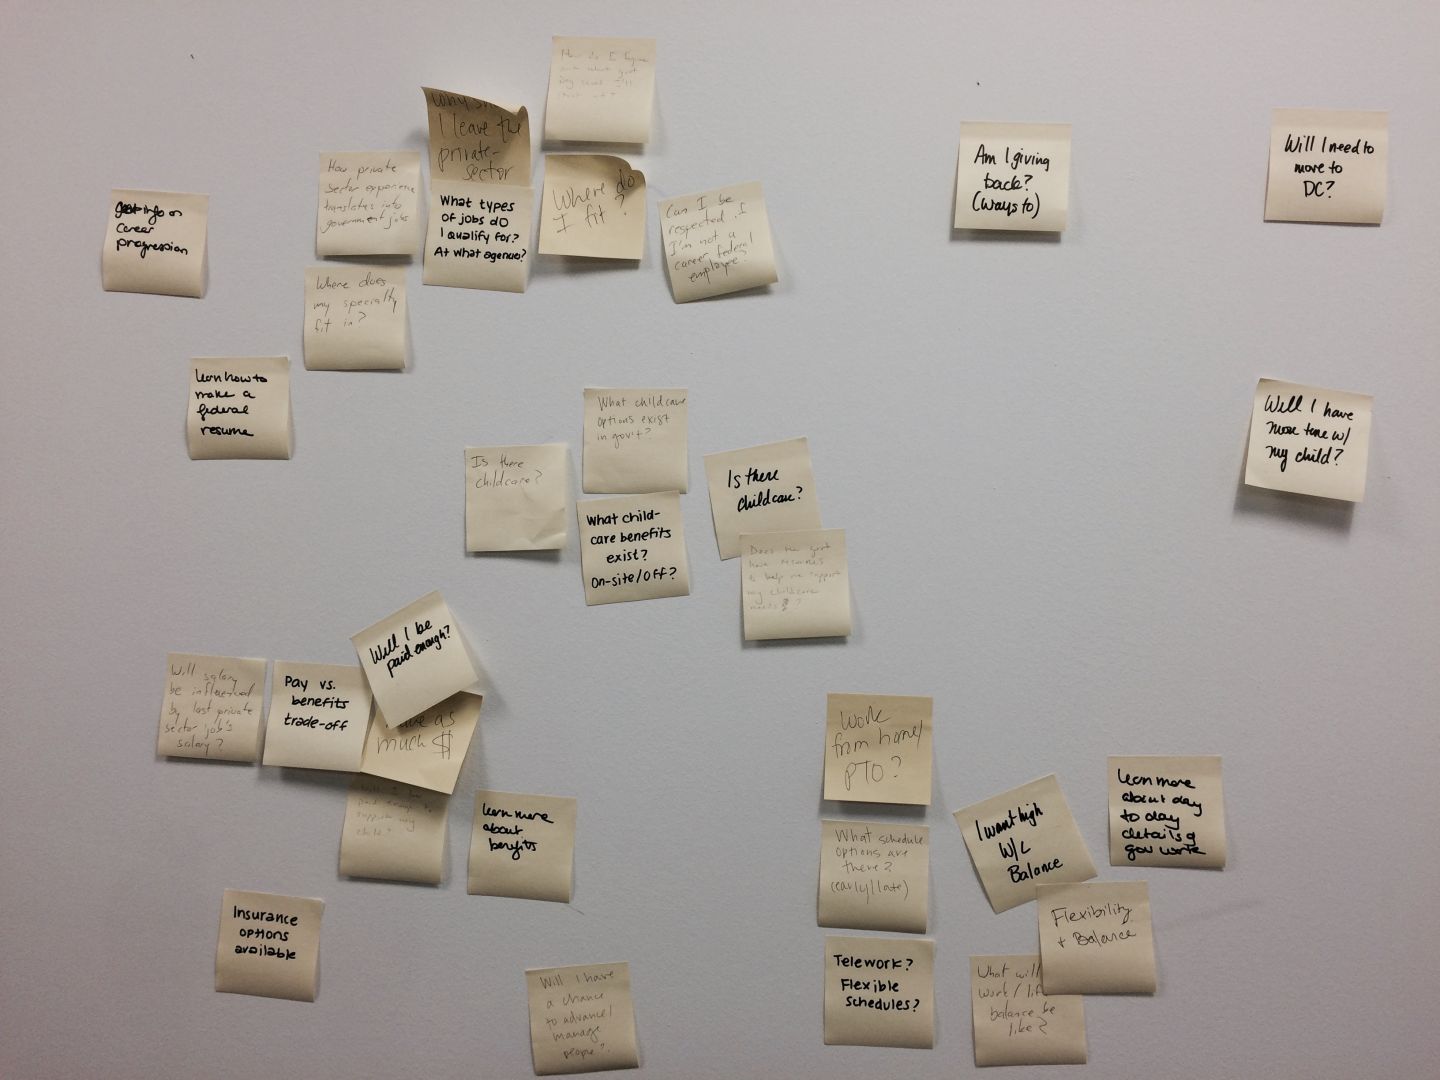 Why
I leave the
private-
sector
How private
sector experience
translates into
government jobs
What types
of jobs do
I qualify for?
At what agencies?
Where do
I fit?
Can I be
respected if
I'm not a
career federal
employee?
Where does
my specialty
fit in?
info on
career
progression
Learn how to
make a
federal
resume
Am I giving
back?
(ways to)
Will I need to
move to
DC?
Will I have
more time w/
my child?
What childcare
options exist
in gov't?
Is there
childcare?
What child-
care benefits
exist?
On-site/Off?
Is there
childcare?
Does the govt
have resources
to help me support
my childcare
needs?
Will I be
paid enough?
Will salary
be influenced
by last private
sector job's
salary?
Pay vs.
benefits
trade-off
as
much $
Will I be
paid enough to
support my
child?
Learn more
about
benefits
Insurance
options
available
Will I have
a chance
to advance/
manage
people?
Work
from home/
PTO?
What schedule
options are
there?
(early/late)
Telework?
Flexible
schedules?
I want high
W/L
Balance
Learn more
about day
to day
details of
gov work
Flexibility
+ Balance
What will
work/life
balance be
like?